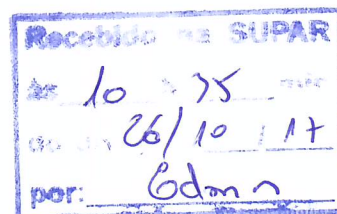 Recebido na SUPAR
às 10 h 35 min
do dia 26/10/17
por: